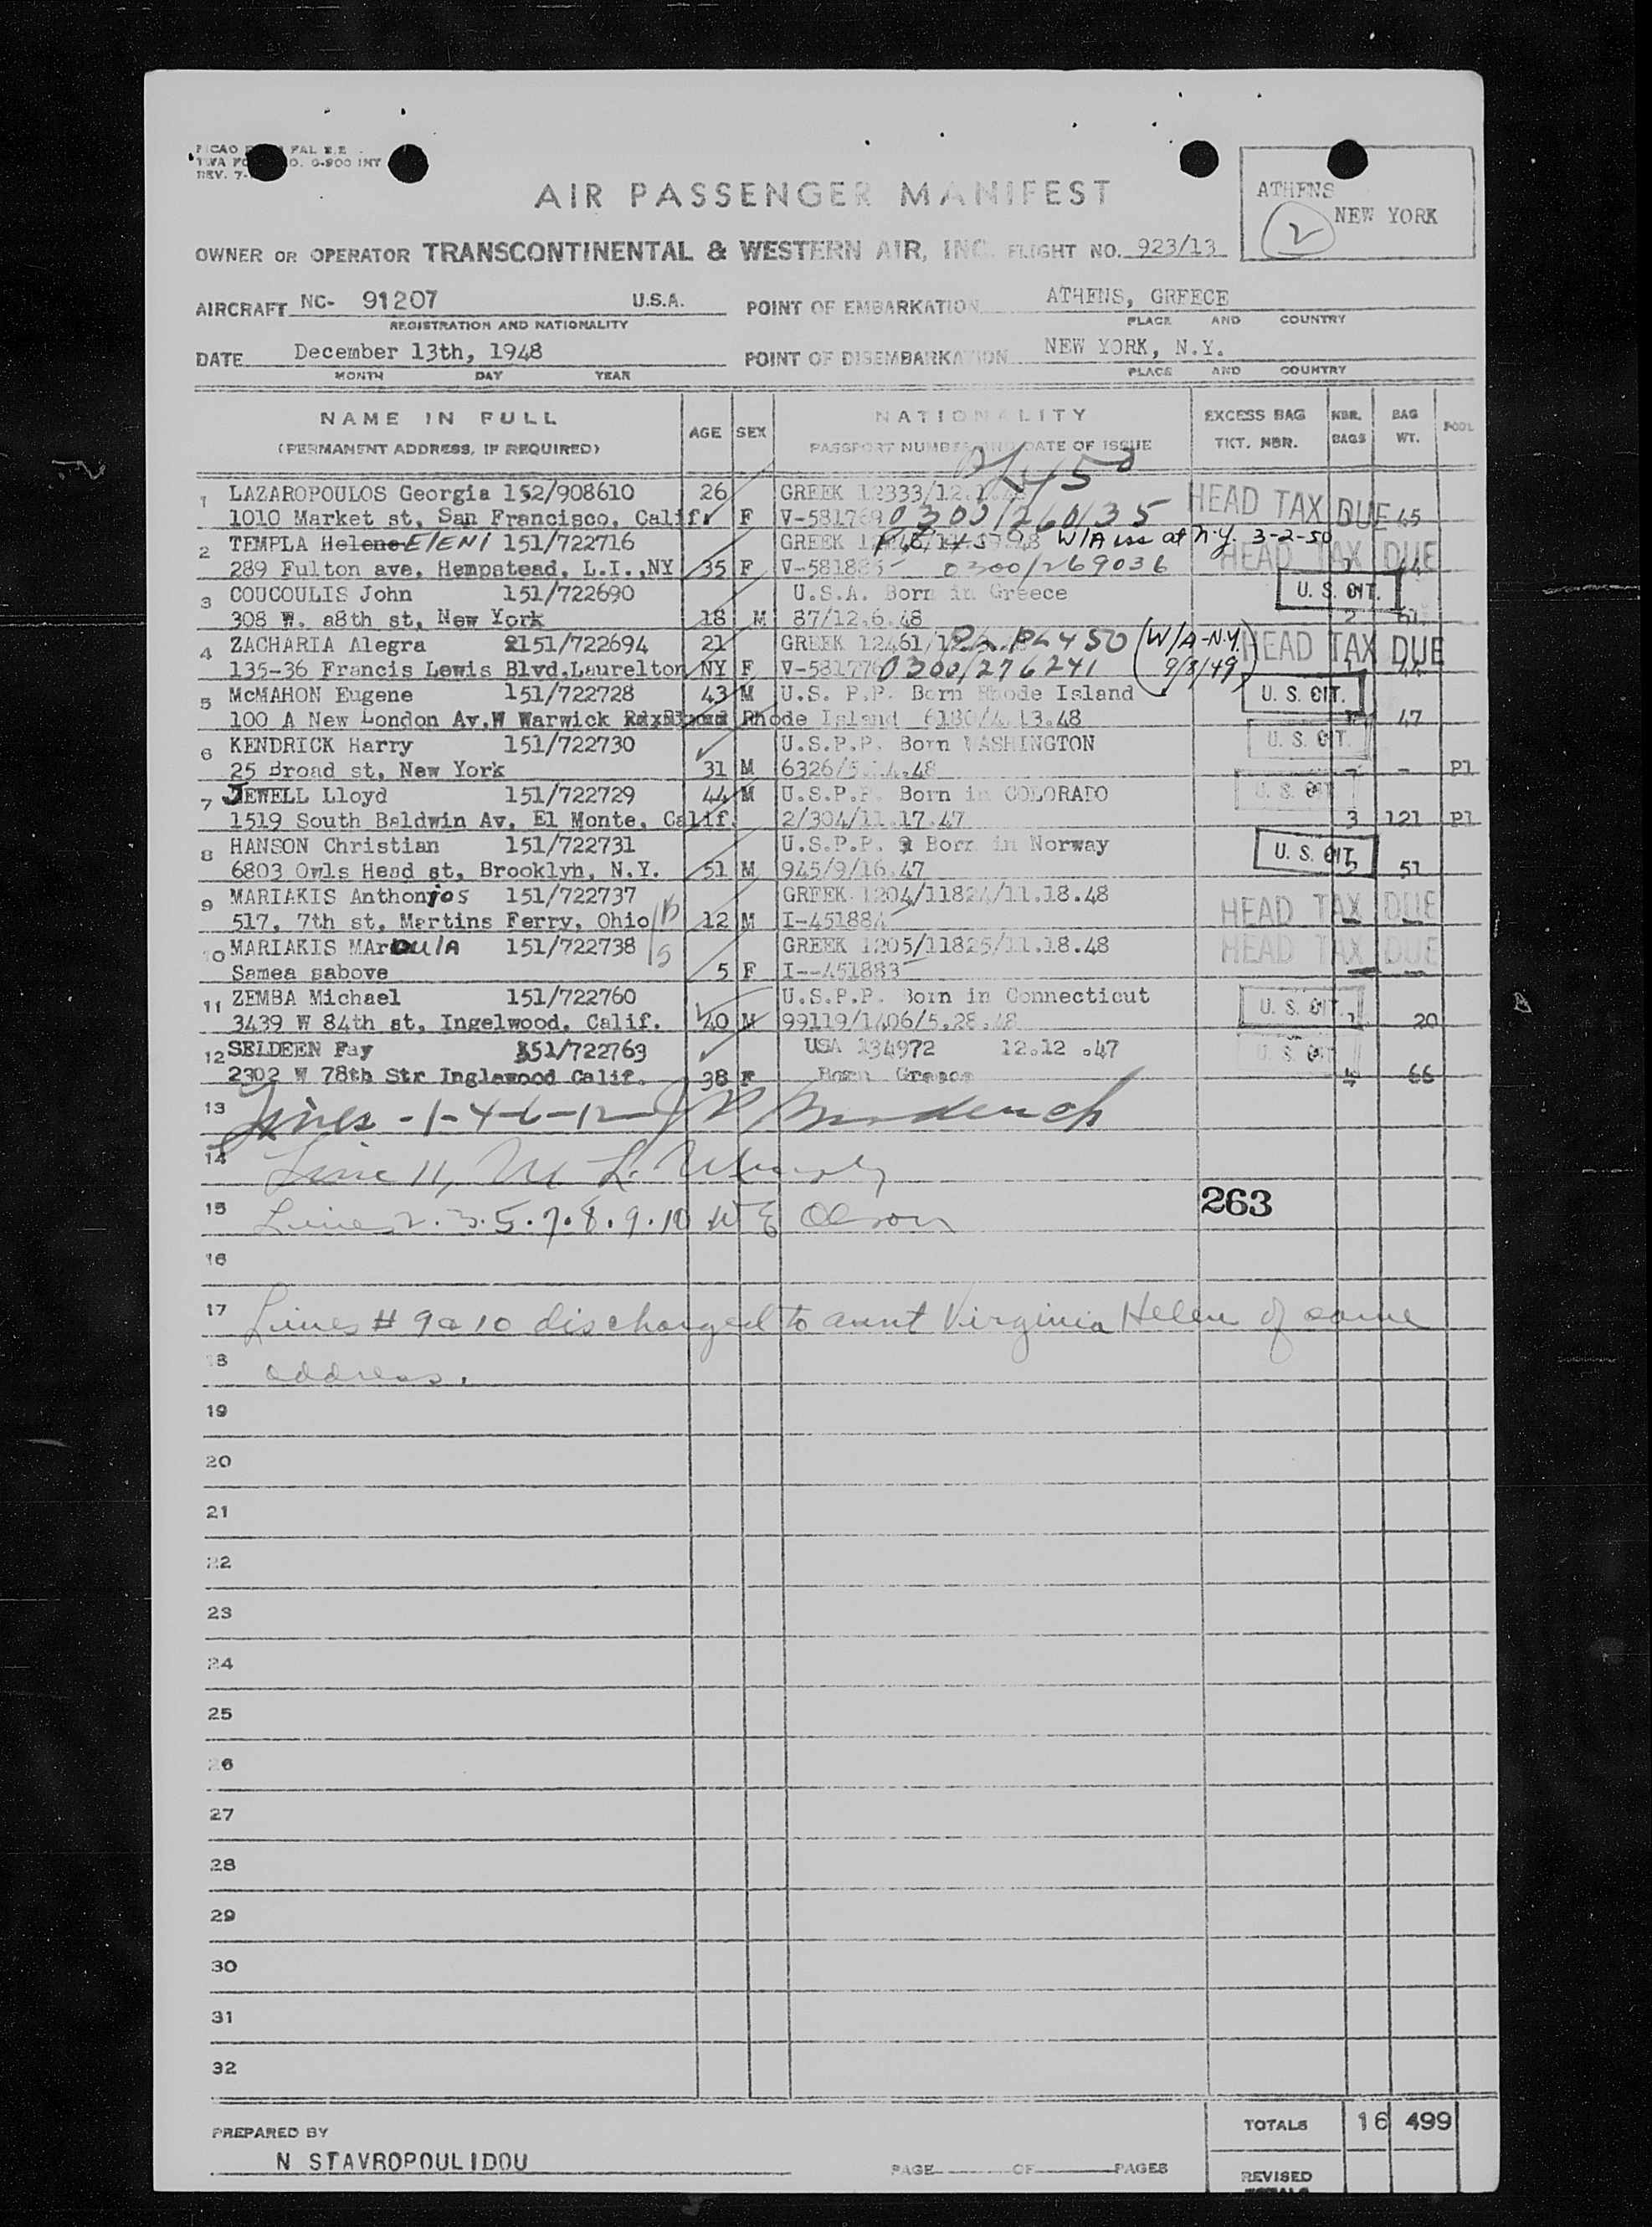 PICAO FAL 2.2
TWA FO O. 0-900 INT
REV. 7-
ATHENS
NEW YORK
2
AIR PASSENGER MANIFEST
OWNER OR OPERATOR TRANSCONTINENTAL & WESTERN AIR, INC. FLIGHT NO. 923/13
AIRCRAFT NC- 91207 U.S.A. POINT OF EMBARKATION ATHENS, GREECE
REGISTRATION AND NATIONALITY PLACE AND COUNTRY
DATE December 13th, 1948 POINT OF DISEMBARKATION NEW YORK, N.Y.
MONTH DAY YEAR PLACE AND COUNTRY
NAME IN FULL AGE SEX NATIONALITY EXCESS BAG NBR. BAG POOL
(PERMANENT ADDRESS, IF REQUIRED) PASSPORT NUMBER AND DATE OF ISSUE TKT. NBR. BAGS WT.
1 LAZAROPOULOS Georgia 152/908610 26 GREEK 12333/12.1.48 HEAD TAX DUE
1010 Market st, San Francisco, Calif. F V-581769 0300/260135 45
2 TEMPLA Helene ELENI 151/722716 GREEK W/A iss at N.Y. 3-2-50 HEAD TAX DUE
289 Fulton ave, Hempstead, L.I.,NY 35 F 0300/269036
3 COUCOULIS John 151/722690 U.S.A. Born in Greece U. S. CIT.
308 W. a8th st, New York 18 M 87/12.6.48 2
4 ZACHARIA Alegra 2151/722694 21 GREEK 12461/ P2450 (W/A-N.Y. HEAD TAX DUE
135-36 Francis Lewis Blvd.Laurelton NY F V-581770 0300/276241 9/8/49) 44
5 McMAHON Eugene 151/722728 43 M U.S. P.P. Born Rhode Island U. S. CIT.
100 A New London Av.W Warwick Rhode Island 6180/4.13.48 47
6 KENDRICK Harry 151/722730 U.S.P.P. Born WASHINGTON U. S. CIT.
25 Broad st, New York 31 M 6326/5. .4.48 - - Pl
7 JEWELL Lloyd 151/722729 44 M U.S.P.P. Born in COLORADO U. S. CIT
1519 South Baldwin Av, El Monte, Calif. 2/304/11.17.47 3 121 Pl
8 HANSON Christian 151/722731 U.S.P.P. Born in Norway U. S. CIT.
6803 Owls Head st, Brooklyn, N.Y. 51 M 945/9/16.47 2 51
9 MARIAKIS Anthonios 151/722737 GREEK 1204/11824/11.18.48 HEAD TAX DUE
517, 7th st, Martins Ferry, Ohio 12 M I-451884
10 MARIAKIS MAROULA 151/722738 GREEK 1205/11825/11.18.48 HEAD TAX DUE
Samea sabove 5 F I--451883
11 ZEMBA Michael 151/722760 U.S.P.P. Born in Connecticut U. S. CIT
3439 W 84th st, Ingelwood, Calif. 40 M 99119/1406/5.28.48 1 20
12 SELDEEN Fay 151/722763 USA 134972 12.12 .47 U. S. CIT
2302 W 78th Str Inglewood Calif. 38 F Born Greece 4 66
13 Lines -1-4-6-12-
14 Line 11, M L.
15 Lines 2.3.5.7.8.9.10 W E Olson 263
16
17 Lines # 9 & 10 discharged to aunt Virginia Helen of same
18 address.
19
20
21
22
23
24
25
26
27
28
29
30
31
32
PREPARED BY TOTALS 16 499
N STAVROPOULIDOU PAGE OF PAGES REVISED
TOTALS